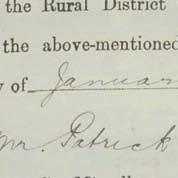 the Rural District
the above-mentioned
y of January
Mr. Patrick